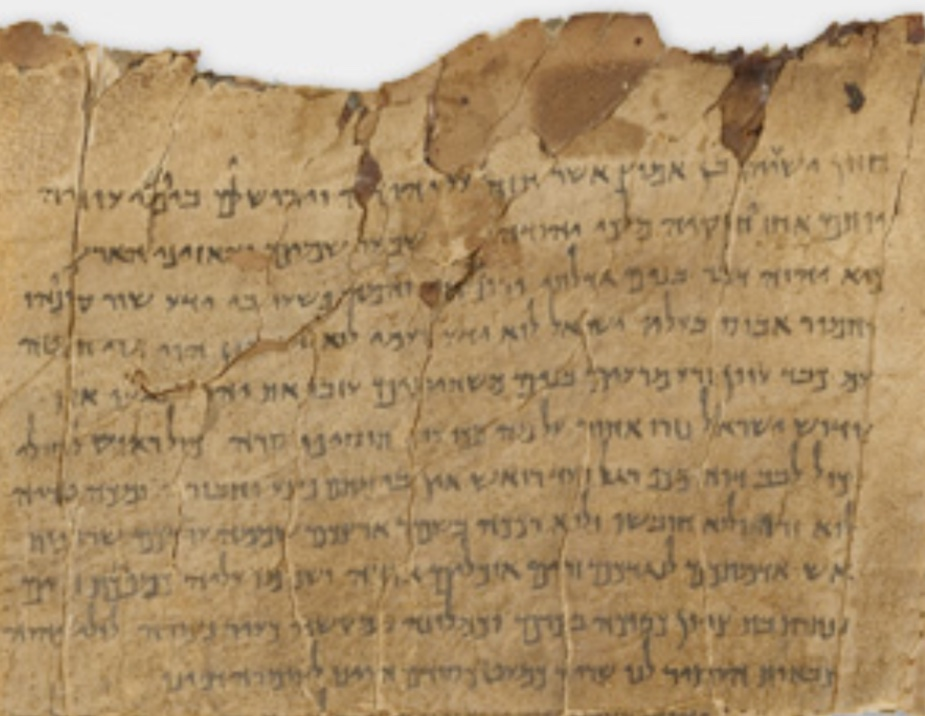 חזון ישעיהו בן אמוץ אשר חזה על יהודה וירושלם ביומי עוזיה
יותם אחז יחזקיה מלכי יהודה שמעו שמים והאזיני הארץ
כיא יהוה דבר בנים גדלתי והמה פשעו בי ידע שור קונהו
חמור אבוס בעליו ישראל לוא ידע ועמי לוא הוי גוי חוטה
עם כבד עוון זרע מרעים בנים משחיתים עזבו את יהוה את
קדוש ישראל נזרו אחור על מה תכו עוד תוסיפו סרה כול ראוש לחולי
וכול לבב דוה מכף רגל ועד רואש אין בו מתם פצע וחבורה ומכה טריה
לוא זרו ולוא חובשו ולוא רככה בשמן ארצכם שממה עריכם שרופות
אש אדמתכם לנגדכם זרים אוכלים אותה ושממו עליה
ונתרת בת ציון כסוכה בכרם וכמלונה במקשה כעיר נצורה לולי יהוה
צבאות הותיר לנו שריד כמעט כסודם היינו לעומרה דמינו